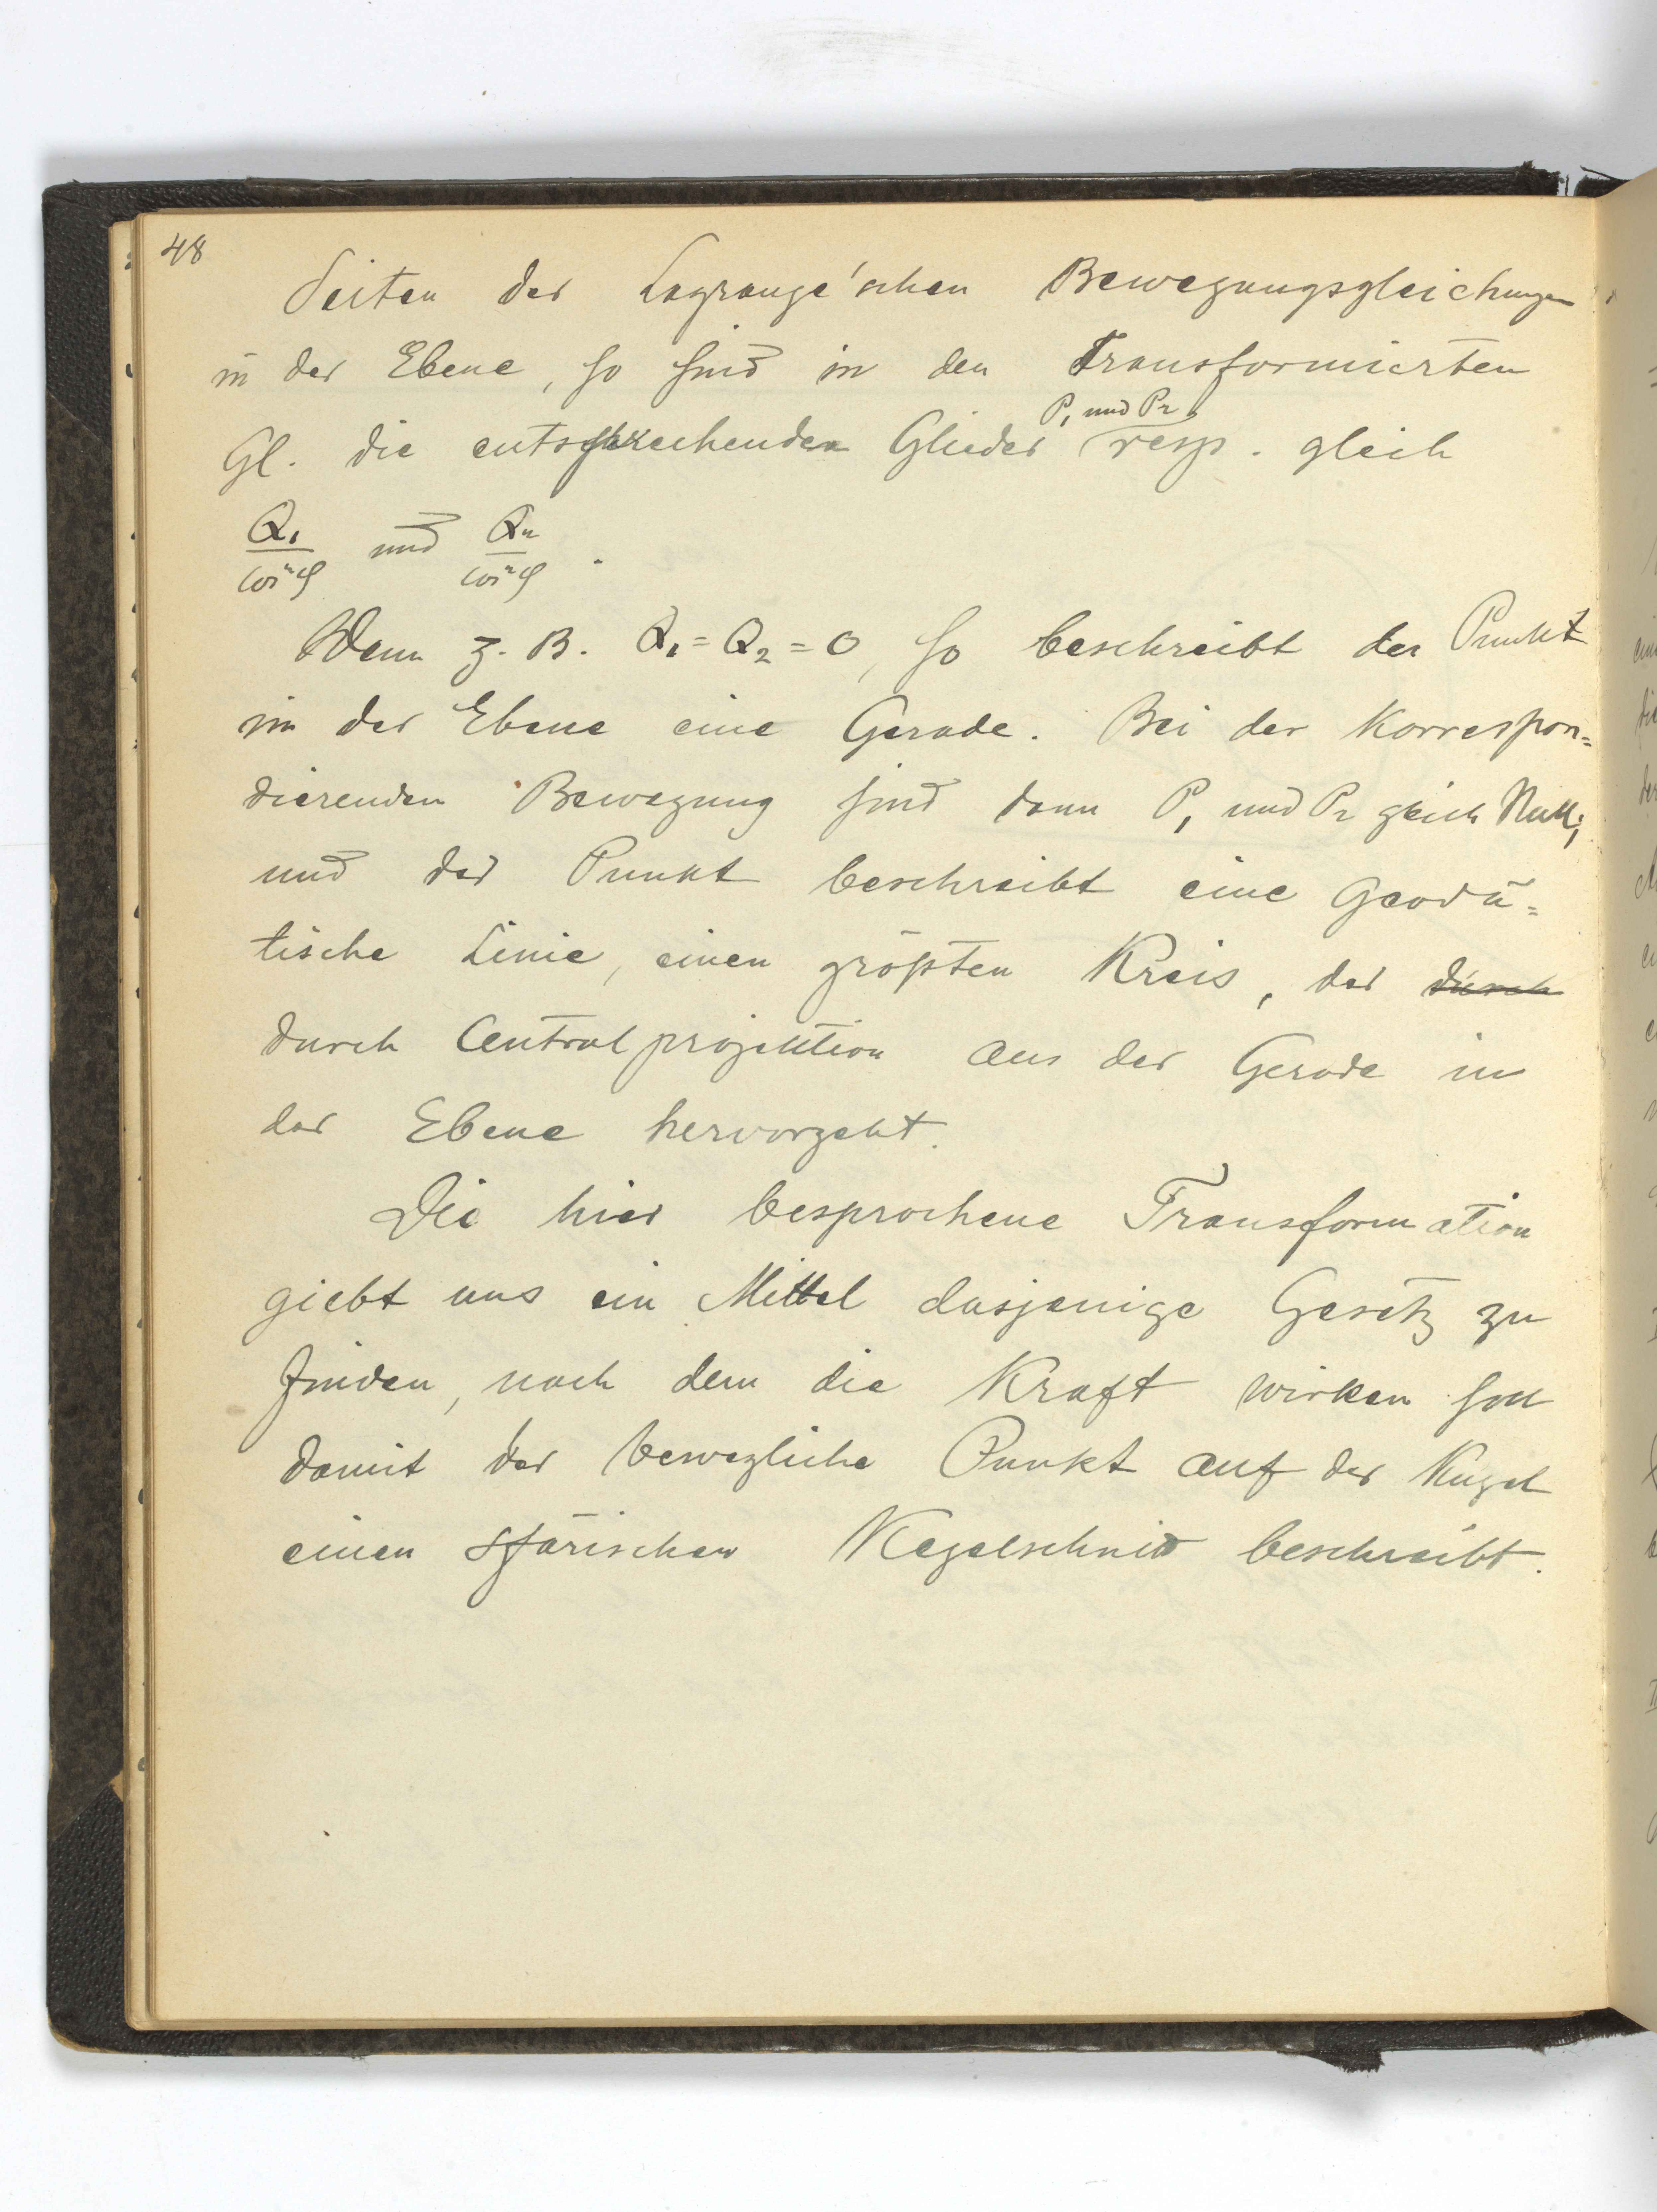 48
Seiten der Lagrange'schen Bewegungsgleichungen
in der Ebene, so sind in den Transformierten
P₁ und P₂
Gl. die entsprechenden Glieder resp. gleich
Q₁/cos²φ und Q₂/cos²φ.
Wenn z. B. Q₁ = Q₂ = 0, so beschreibt der Punkt
in der Ebene eine Gerade. Bei der Korrespon=
dierenden Bewegung sind dann P₁ und P₂ gleich Null;
und der Punkt beschreibt eine Geodä=
tische Linie, einen größten Kreis, der durch
durch Centralprojektion aus der Gerade in
der Ebene hervorgeht.
Die hier besprochene Transformation
giebt uns ein Mittel dasjenige Gesetz zu
finden, nach dem die Kraft wirken soll
damit der bewegliche Punkt auf der Kugel
einen sfärischen Kegelschnitt beschreibt.